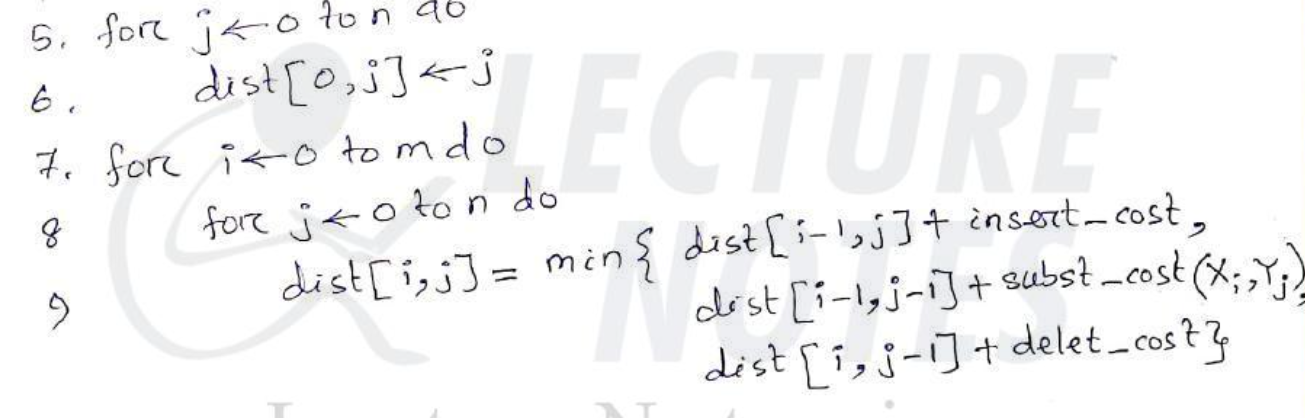 5. for j ← 0 to n do
6. dist[0,j] ← j
7. for i ← 0 to m do
8 for j ← 0 to n do
9 dist[i,j] = min{ dist[i-1,j] + insert_cost,
dist[i-1,j-1] + subst_cost(Xi,Yj),
dist[i,j-1] + delet_cost}
LECTURE
NOTES